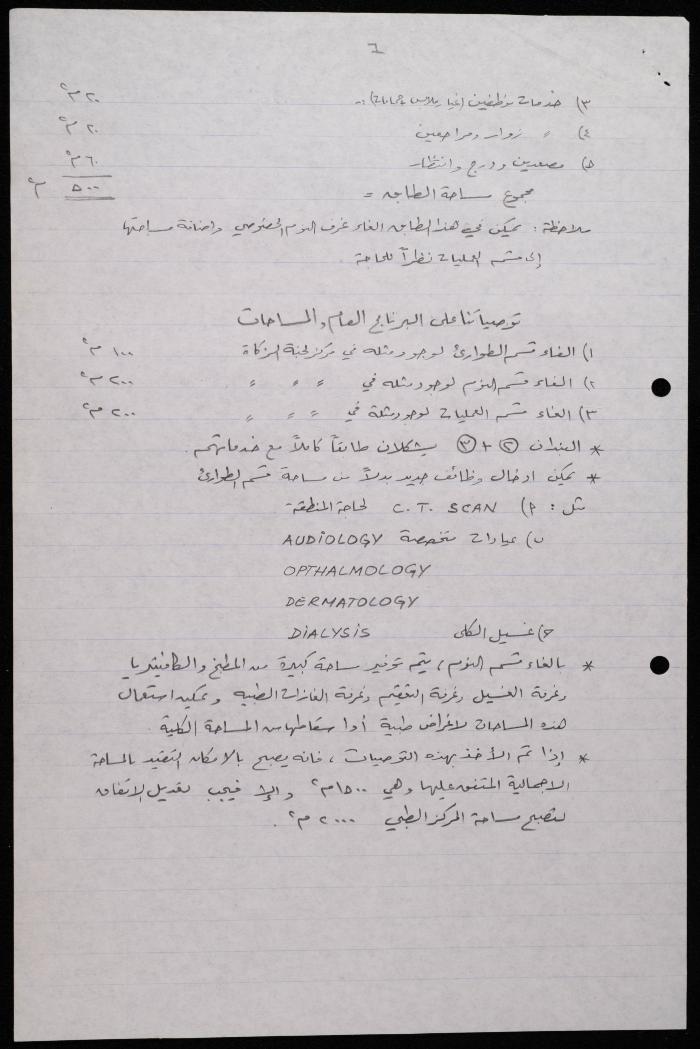 ٦
٣) خدمات موظفين (غيار ملابس + حمامات) :- ٢٠ م٢
٤) " زوار ومراجعين ٢٠ م٢
٥) مصعدين ودرج وانتظار ٦٠ م٢
مجموع مساحة الطابق = ٥٠٠ م٢
ملاحظة : يمكن في هذا الطابق الغاء غرف النوم الخصوصي واضافة مساحتها
إلى قسم العمليات نظراً للحاجة .
توصياتنا على البرنامج العام والمساحات
١) الغاء قسم الطوارئ لوجود مثله في مركز لجنة الزكاة ١٠٠ م٢
٢) الغاء قسم النوم لوجود مثله في " " " " ٢٠٠ م٢
٣) الغاء قسم العمليات لوجود مثلة في " " " " ٢٠٠ م٢
* البندان ② + ③ يشكلان طابقاً كاملاً مع خدماتهم .
* يمكن ادخال وظائف جديد بدلاً من مساحة قسم الطوارئ
مثل : أ) C.T. SCAN لحاجة المنطقة
ب) عيادات متخصصة AUDIOLOGY
OPTHALMOLOGY
DERMATOLOGY
ج) غسيل الكلى DIALYSIS
* بالغاء قسم النوم، يتم توفير مساحة كبيرة من المطبخ والكافيتريا
وغرفة الغسيل وغرفة التعقيم وغرفة الغازات الطبية ويمكن استعمال
هذه المساحات لاغراض طبية أو اسقاطها من المساحة الكلية .
* إذا تم الأخذ بهذه التوصيات ، فانه يصبح بالامكان التقيد بالمساحة
الاجمالية المتفق عليها وهي ١٥٠٠ م٢ وإلا فيجب تعديل الاتفاق
لتصبح مساحة المركز الطبي ٢٠٠٠ م٢ .